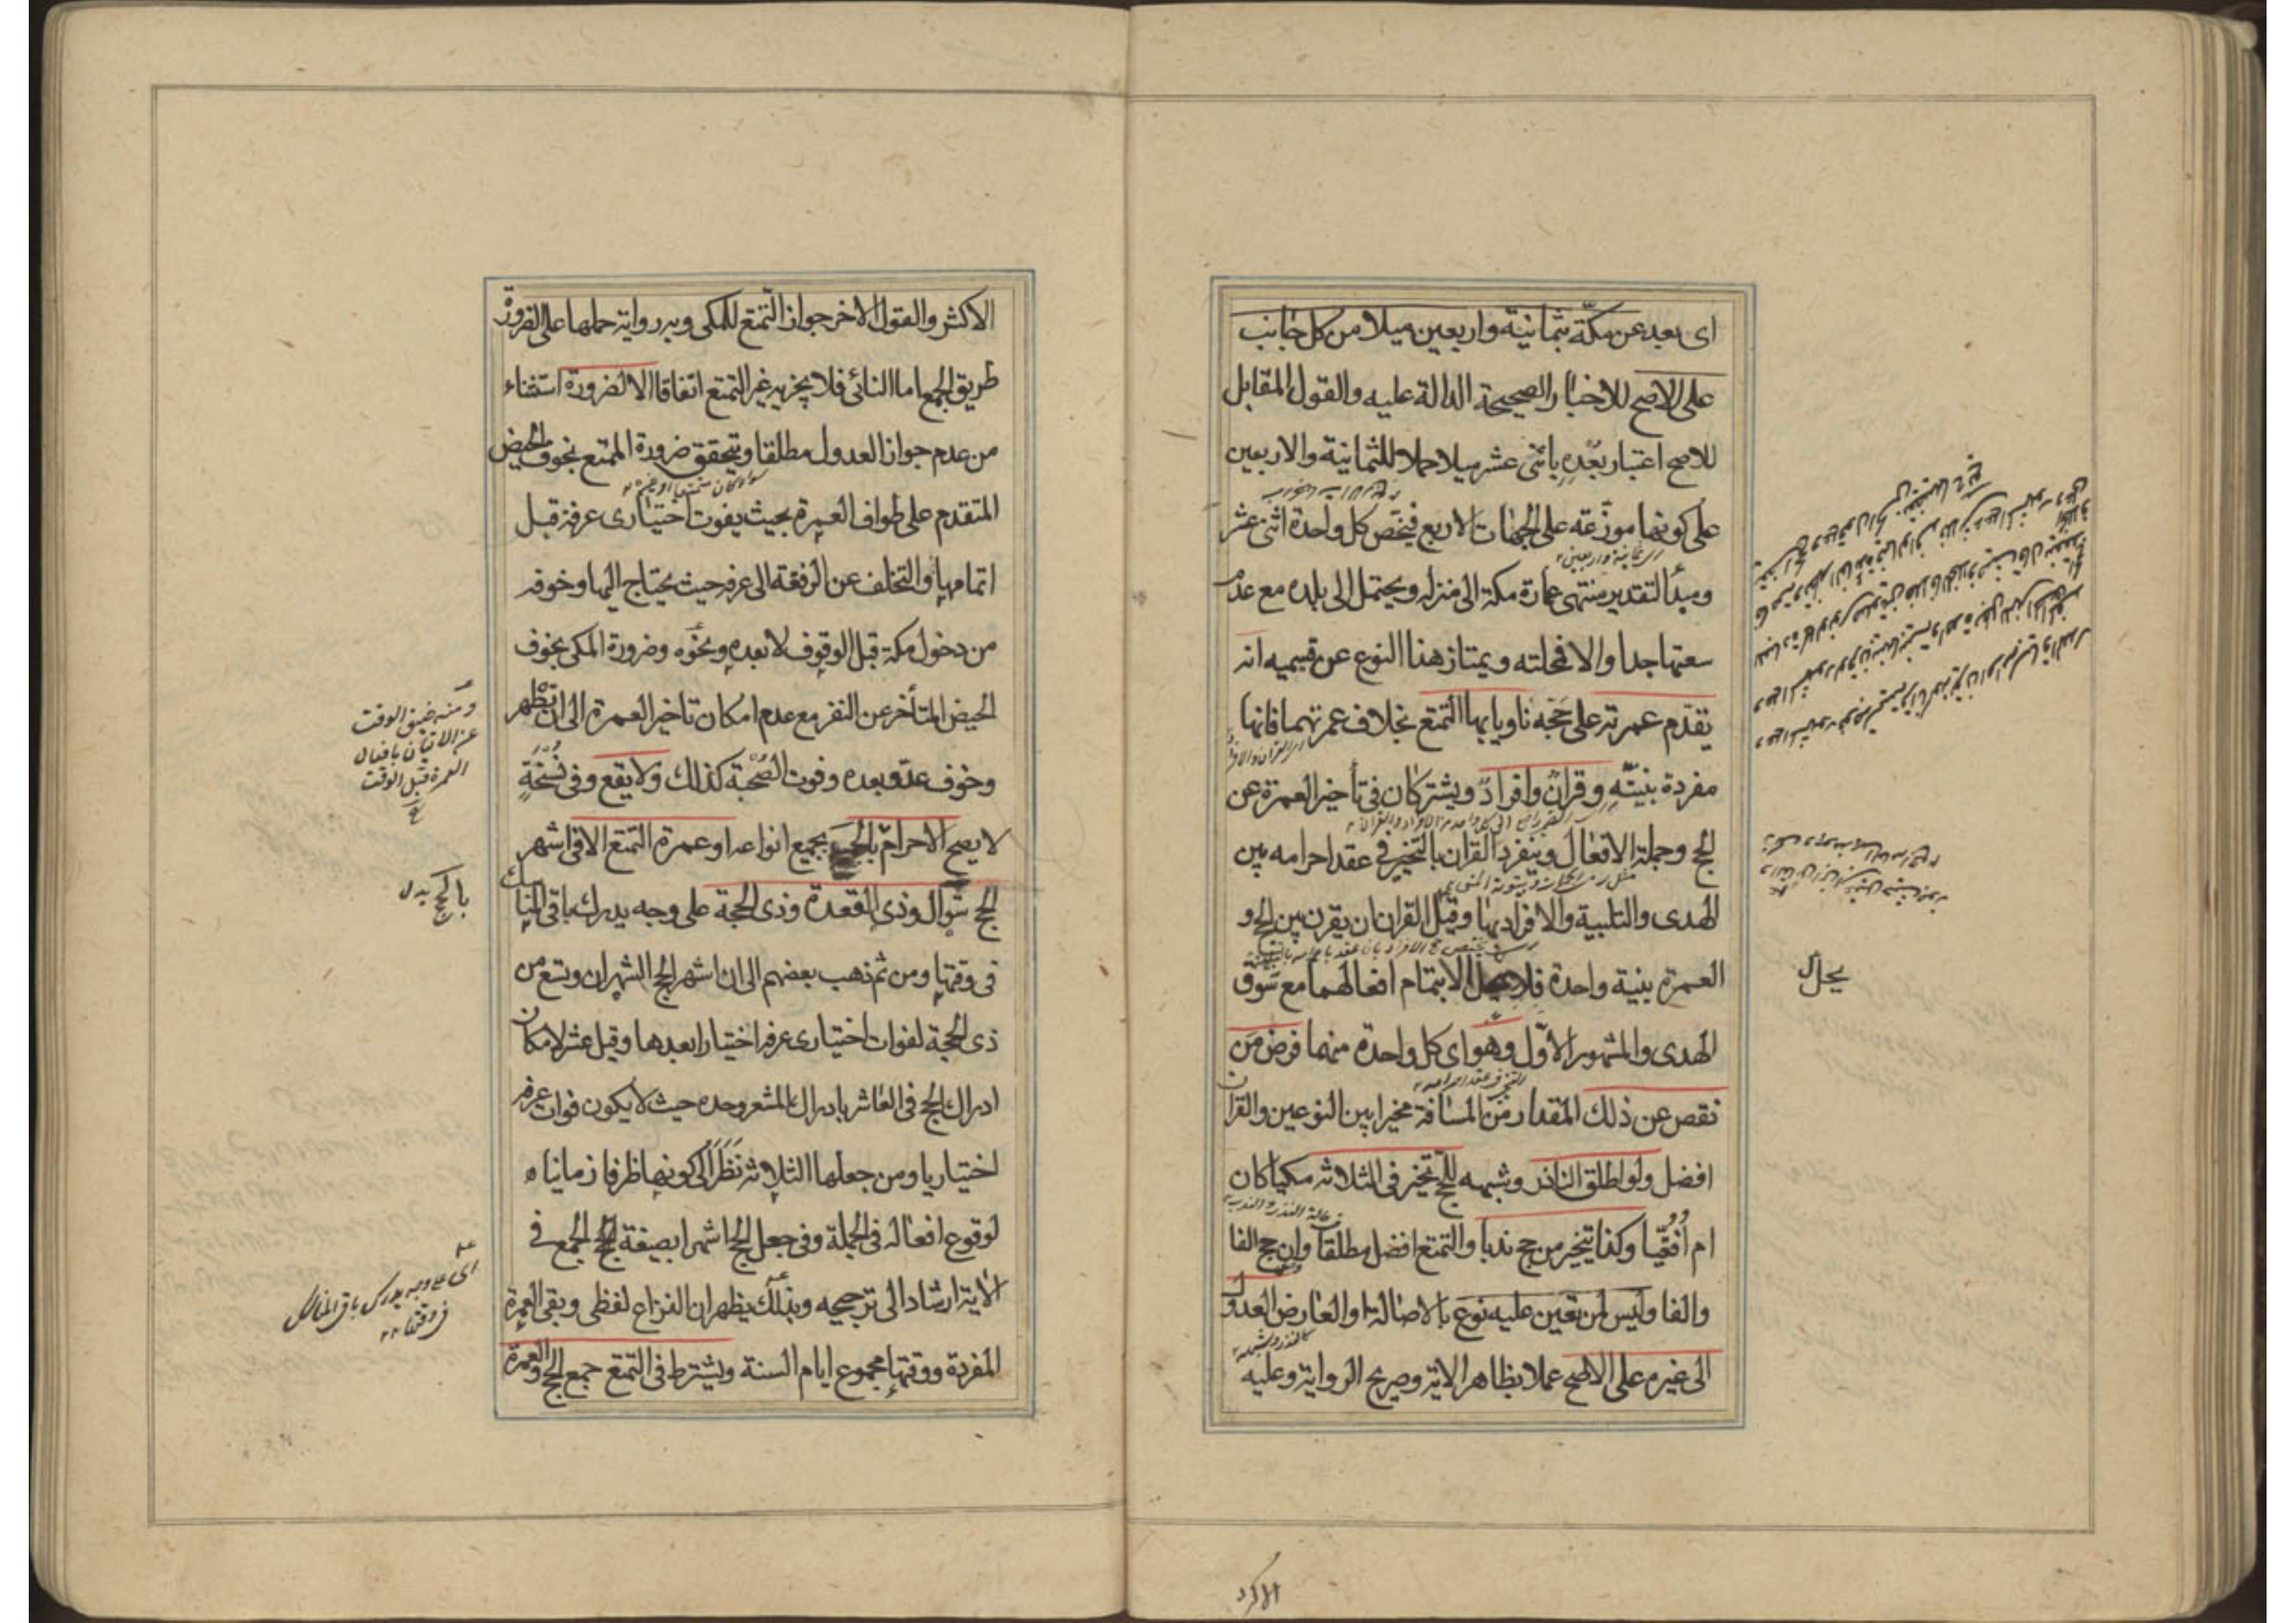 اى بعد عن مكّة بثمانية واربعين ميلا من كل جانب
على الاصح للاخبار الصحيحة الدالة عليه والقول المقابل
للاصح اعتبار بُعْدِه باثنى عشر ميلا حملا للثمانية والاربعين
على كونها موزّعة على الجهات الاربع فيخص كل واحدة اثنى عشر
ومبدأ التقدير منتهى عمارة مكة الى منزله ويحتمل الى بلده مع عدم
سعتها جدا والا فمحلته ويمتاز هذا النوع عن قسيميه انه
يقدّم عمرته على حَجّه ناويا بها التمتع بخلاف عمرتهما فانها
مفردة بنيتّهِ وقرانٌ وافرادٌ ويشتركان فى تأخير العمرة عن
الحج وجملة الافعال وينفرد القران بالتخيير فى عقد احرامه بين
الهدى والتلبية والافراد بها وقيل القران ان يقرن بين الحج و
العمرة بنية واحدة فلا يحل الا بتمام افعالهما مع سَوق
الهدى والمشهور الاوّل وهو اى كل واحدة منهما فرض مَن
نقص عن ذلك المقدار من المسافة مخيرا بين النوعين والقران
افضل ولو اطلق الناذر وشبهه للحج تخير فى الثلاثة مكيا كان
ام اُفُقيّا وكذا يتخير من حج ندبا والتمتع افضل مطلقا وان حج الفا
والفا وليس لمن تعين عليه نوع بالاصالة او العارض العدول
الى غيره على الاصح عملا بظاهر الاية وصريح الرواية وعليه
يحل
الاكثر والقول الاخر جواز التّمتع للمكى وبه رواية حملها على الضرورة
طريق الجمع اما النائى فلا يجزيه غير التمتع اتفاقا الا لضرورة استثناء
من عدم جواز العدول مطلقا ويتحقق ضرورة المتمتع بخوف الحيض
المتقدم على طواف العمرة بحيث يفوت اختيارى عرفة قبل
اتمامها او التخلف عن الرفقة الى عرفه حيث يحتاج اليها وخوفه
من دخول مكة قبل الوقوف لا بعده ونحوْه وضرورة المكى بخوف
الحيض المتأخر عن النفر مع عدم امكان تاخير العمرة الى ان تطْهر
وخوف عدو بعده وفوت الصّحبة كذلك ولا يقع وفى نُسْخَةٍ
لا يصح الاحرام بالحج بجميع انواعه او عمرة التمتع الا فى اشهر
الحج شوّال وذى القعدة وذى الحجة على وجه يدرك باقى المناسك
فى وقتها ومن ثم ذهب بعضهم الى ان اشهر الحج الشهران وتسع من
ذى الحجة لفوات اختيارى عرفه اختيارا بعدها وقيل عشر لامكان
ادراك الحج فى العاشر بادراك المشعر وحده حيث لا يكون فوات عرفه
اختياريا ومن جعلها الثلاثة نَظَرَ الى كونها ظرفا زمانيا
لوقوع افعاله فى الجملة وفى جعل الحج اشهرا بصيغة الجمع فى
الاية ارشاد الى ترجيحه وبذلك يظهر ان النزاع لفظى وبقى العمرة
المفردة ووقتها مجموع ايام السنة ويشترط فى التمتع جمع الحج والعمرة
ومنه ضيق الوقت
عن الاتيان بافعال
العمرة قبل الوقت
بالحج بدل
اى على وجه يدرك باقى المناسك
فى وقتها